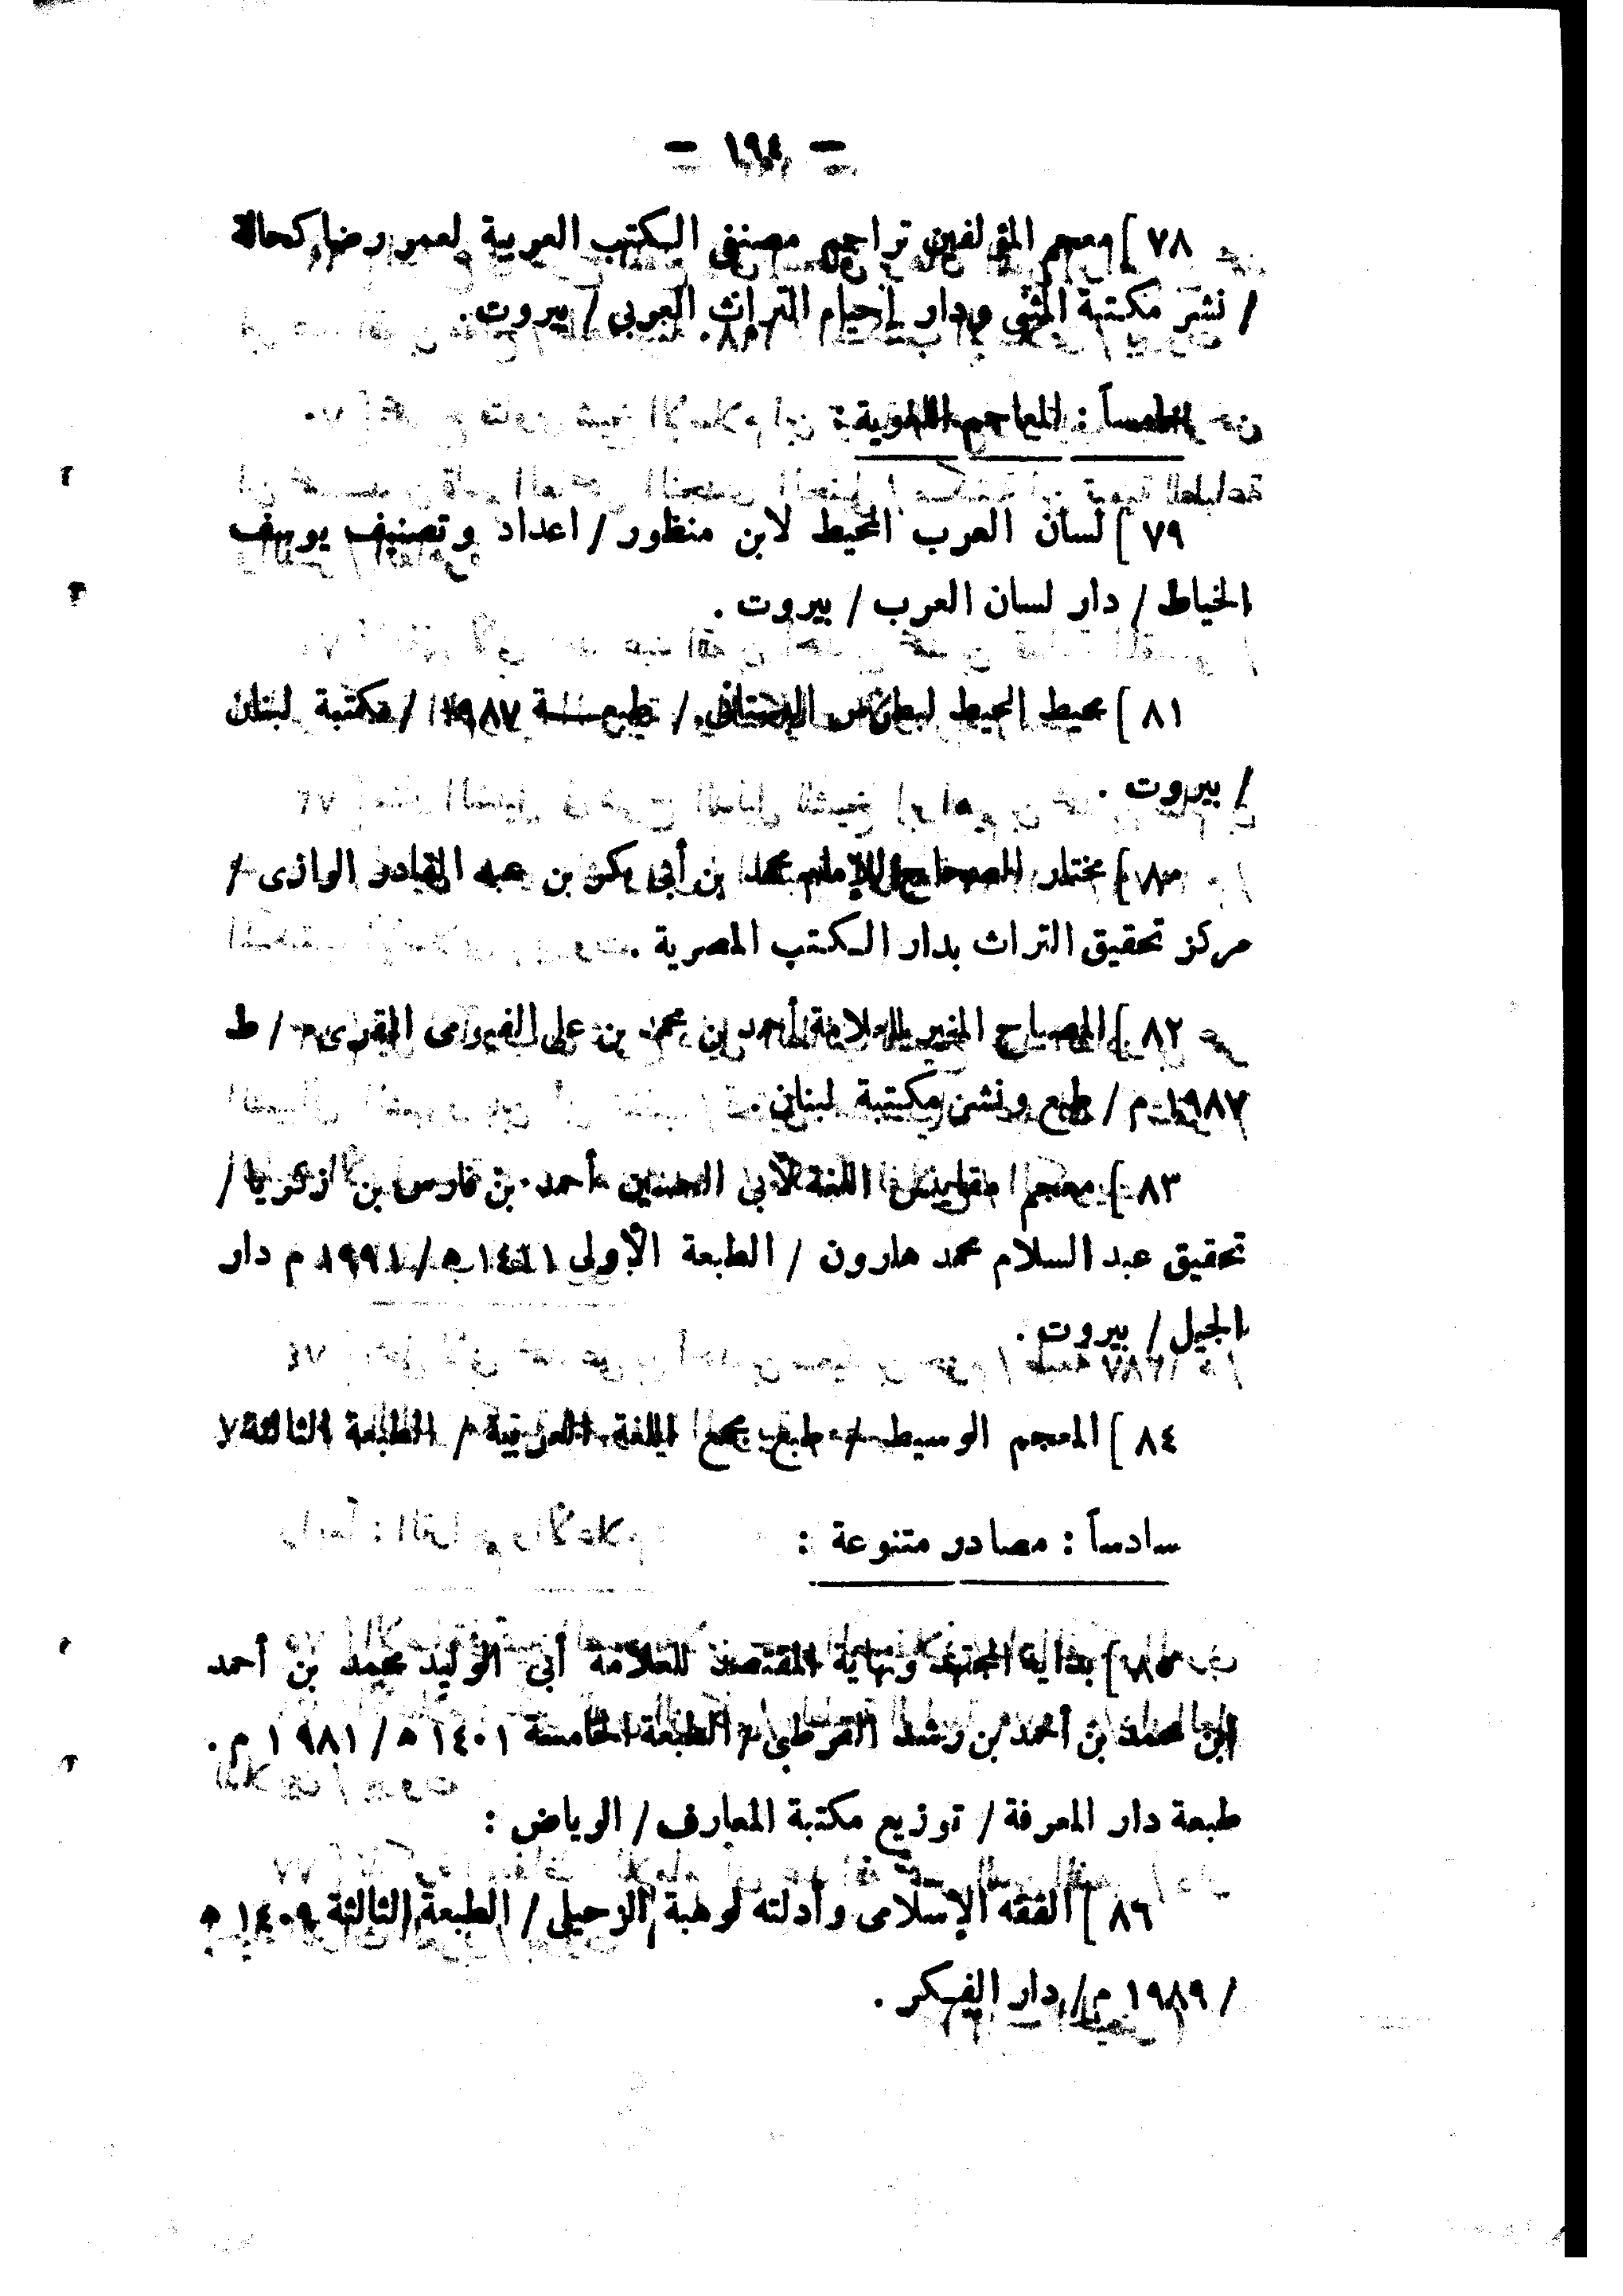 – ١٩٤ –
٧٨ ] معجم المؤلفين تراجم مصنفى الكتب العربية لعمر رضا كحالة
/ نشر مكتبة المثنى ودار إحياء التراث العربى / بيروت .
خامساً : المعاجم اللغوية :
٧٩ ] لسان العرب المحيط لابن منظور / اعداد وتصنيف يوسف
الخياط / دار لسان العرب / بيروت .
٨١ ] محيط المحيط لبطرس البستانى / طبعة ١٩٨٧ / مكتبة لبنان
/ بيروت .
] مختار الصحاح للإمام محمد بن أبى بكر بن عبد القادر الرازى /
مركز تحقيق التراث بدار الكتب المصرية .
٨٢ ] المصباح المنير للعلامة أحمد بن محمد بن على الفيومى المقرى / ط
١٩٨٧ م / طبع ونشر مكتبة لبنان .
٨٣ ] معجم مقاييس اللغة لأبى الحسين أحمد بن فارس بن زكريا /
تحقيق عبد السلام محمد هارون / الطبعة الأولى ١٤١١ ه / ١٩٩١ م دار
الجيل / بيروت .
٨٤ ] المعجم الوسيط / طبع مجمع اللغة العربية / الطبعة الثالثة
سادساً : مصادر متنوعة :
٨٥ ] بداية المجتهد ونهاية المقتصد للعلامة أبى الوليد محمد بن أحمد
ابن محمد بن أحمد بن رشد القرطبى / الطبعة الخامسة ١٤٠١ ه / ١٩٨١ م .
طبعة دار المعرفة / توزيع مكتبة المعارف / الرياض :
٨٦ ] الفقه الإسلامى وأدلته لوهبة الزحيلى / الطبعة الثالثة ١٤٠٩ ه
/ ١٩٨٩ م / دار الفكر .